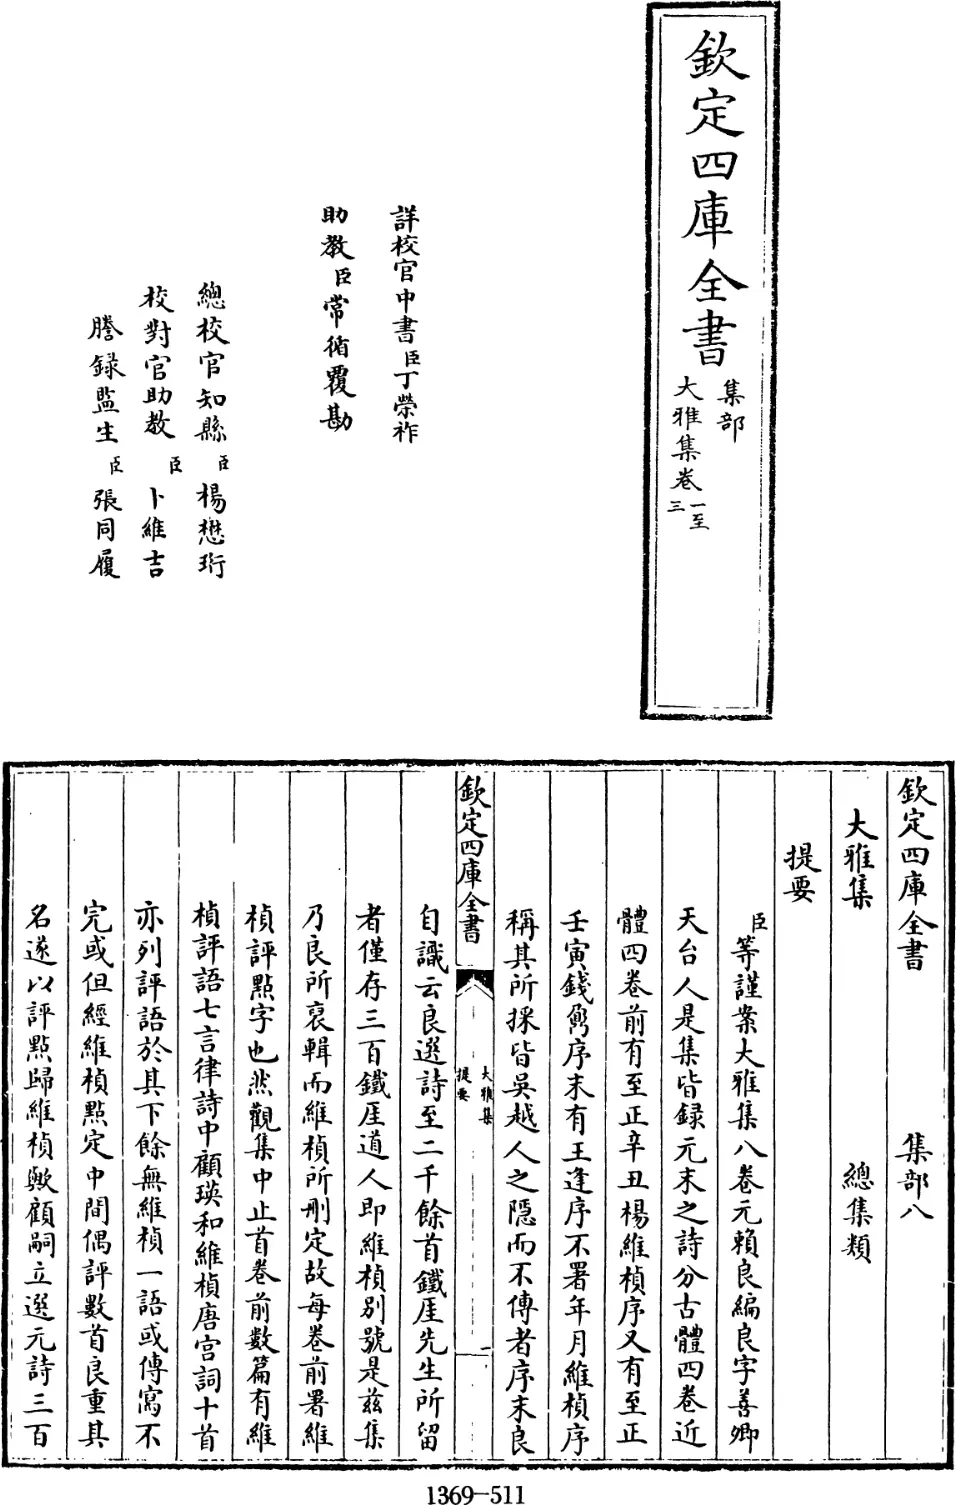 欽定四庫全書
集部
大雅集卷一至三
詳校官中書臣丁榮祚
助教臣常循覆勘
總校官知縣臣楊懋珩
校對官助教臣卜維吉
謄録監生臣張同履
欽定四庫全書　集部八
大雅集　總集類
提要
臣等謹案大雅集八卷元賴良編良字善卿
天台人是集皆録元末之詩分古體四卷近
體四卷前有至正辛丑楊維楨序又有至正
壬寅錢鼒序末有王逢序不署年月維楨序
稱其所採皆吳越人之隱而不傳者序末良
欽定四庫全書
大雅集
提要
一
自識云良選詩至二千餘首鐵厓先生所留
者僅存三百鐵厓道人即維楨別號是兹集
乃良所裒輯而維楨所刪定故每卷前署維
楨評點字也然觀集中止首卷前數篇有維
楨評語七言律詩中顧瑛和維楨唐宫詞十首
亦列評語於其下餘無維楨一語或傳寫不
完或但經維楨點定中間偶評數首良重其
名遂以評點歸維楨歟顧嗣立選元詩三百
1369-511